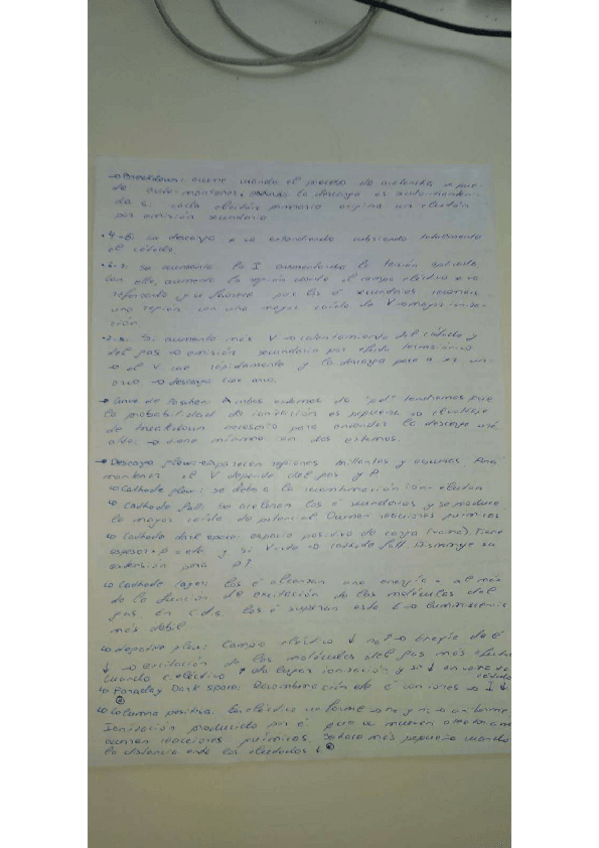 → Breakdown: ocurre cuando el proceso de avalancha se pue-
de auto-mantener, la descarga es auto-manteni-
da si cada electrón primario origina un electrón
por emisión secundaria
· 4-6: La descarga se va extendiendo cubriendo totalmente
el cátodo.
se aumenta la I aumentando la tensión aplicada
con ello, aumenta la región donde el campo eléctrico se va
reforzando y se favorece por los é secundarios
una región con una mayor caída de V → mayor ioniza-
ción
Si aumenta más V → calentamiento del cátodo y
del gas → emisión secundaria por efecto termoiónico
→ el V cae rápidamente y la descarga pasa a ser un
arco → descarga tipo arco.
→ Curva de Paschen: A ambos extremos de "p·d" tendremos que
la probabilidad de ionización es pequeña → el voltaje
de breakdown necesario para encender la descarga será
alto. → tiene mínimo en dos extremos.
→ Descarga glow: aparecen regiones brillantes y oscuras. Para
mantener el V depende del gas y P
↳ Cathode glow: se debe a la recombinación ión-electrón
↳ Cathode fall: Se aceleran los é secundarios y se produce
la mayor caída de potencial. Ocurren reacciones químicas
↳ Cathode dark space: espacio positivo de carga Tiene
espesor · p = cte y si V = cte → cathode fall. Disminuye su
extensión para P↑
↳ Cathode layer: los é alcanzan una energía = al máx
de la función de excitación de las moléculas del
gas, en c.d.s. los é superan esta E → luminiscencia
más débil.
↳ Negative glow: Campo eléctrico ↓ → Energía de é
↓ → excitación de las moléculas del gas más efectiva
Cuando c. eléctrico ↑ da lugar ionización y
↳ Faraday Dark space: Recombinación de é con iones → I ↓
↳ Columna positiva: C. eléctrico uniforme
Ionización producida por é que se mueven aleatoriamente
ocurren reacciones químicas. Se hace más pequeña cuando
la distancia entre los electrodos ↓